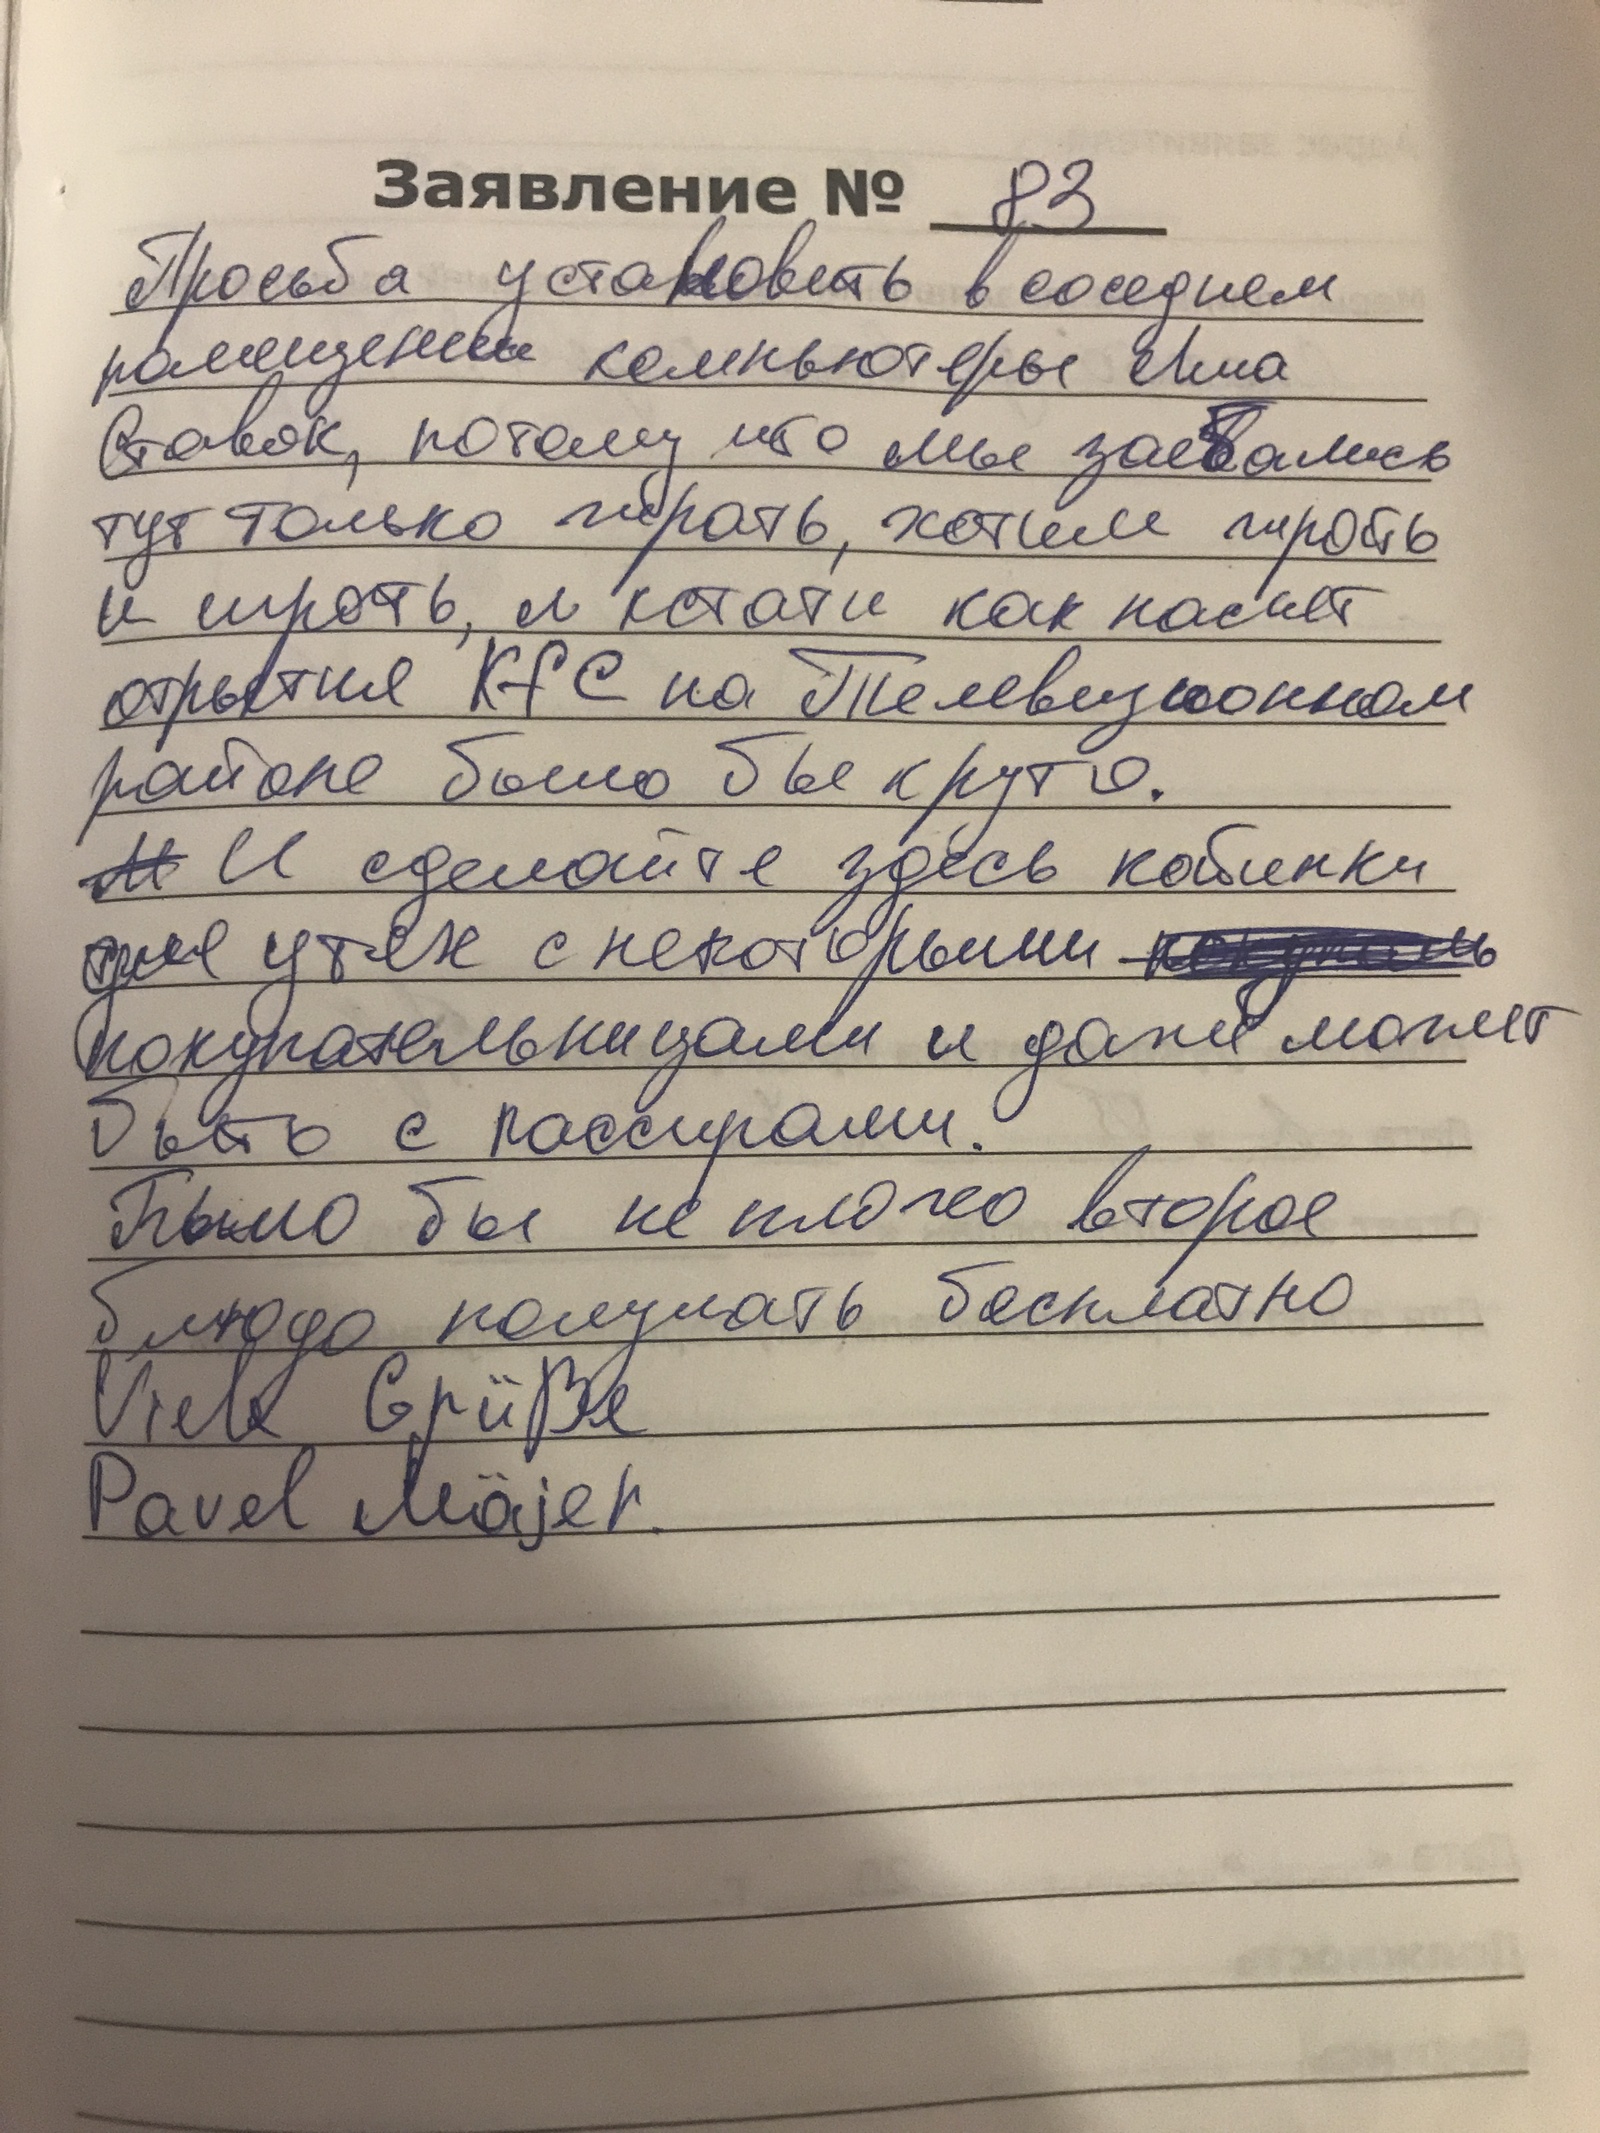 Заявление № 83
Просьба установить в соседнем
помещении компьютеры Лига
Ставок, потому что мы заебались
тут только жрать, хотим жрать
и играть, и кстати как насчет
открытия KFC на Телевизионном
районе было бы круто.
И сделайте здесь кабинки
для утех с некоторыми
покупательницами и даже может
быть с кассирами.
Было бы не плохо второе
блюдо получать бесплатно
Viele Grüße
Pavel Mäjer.